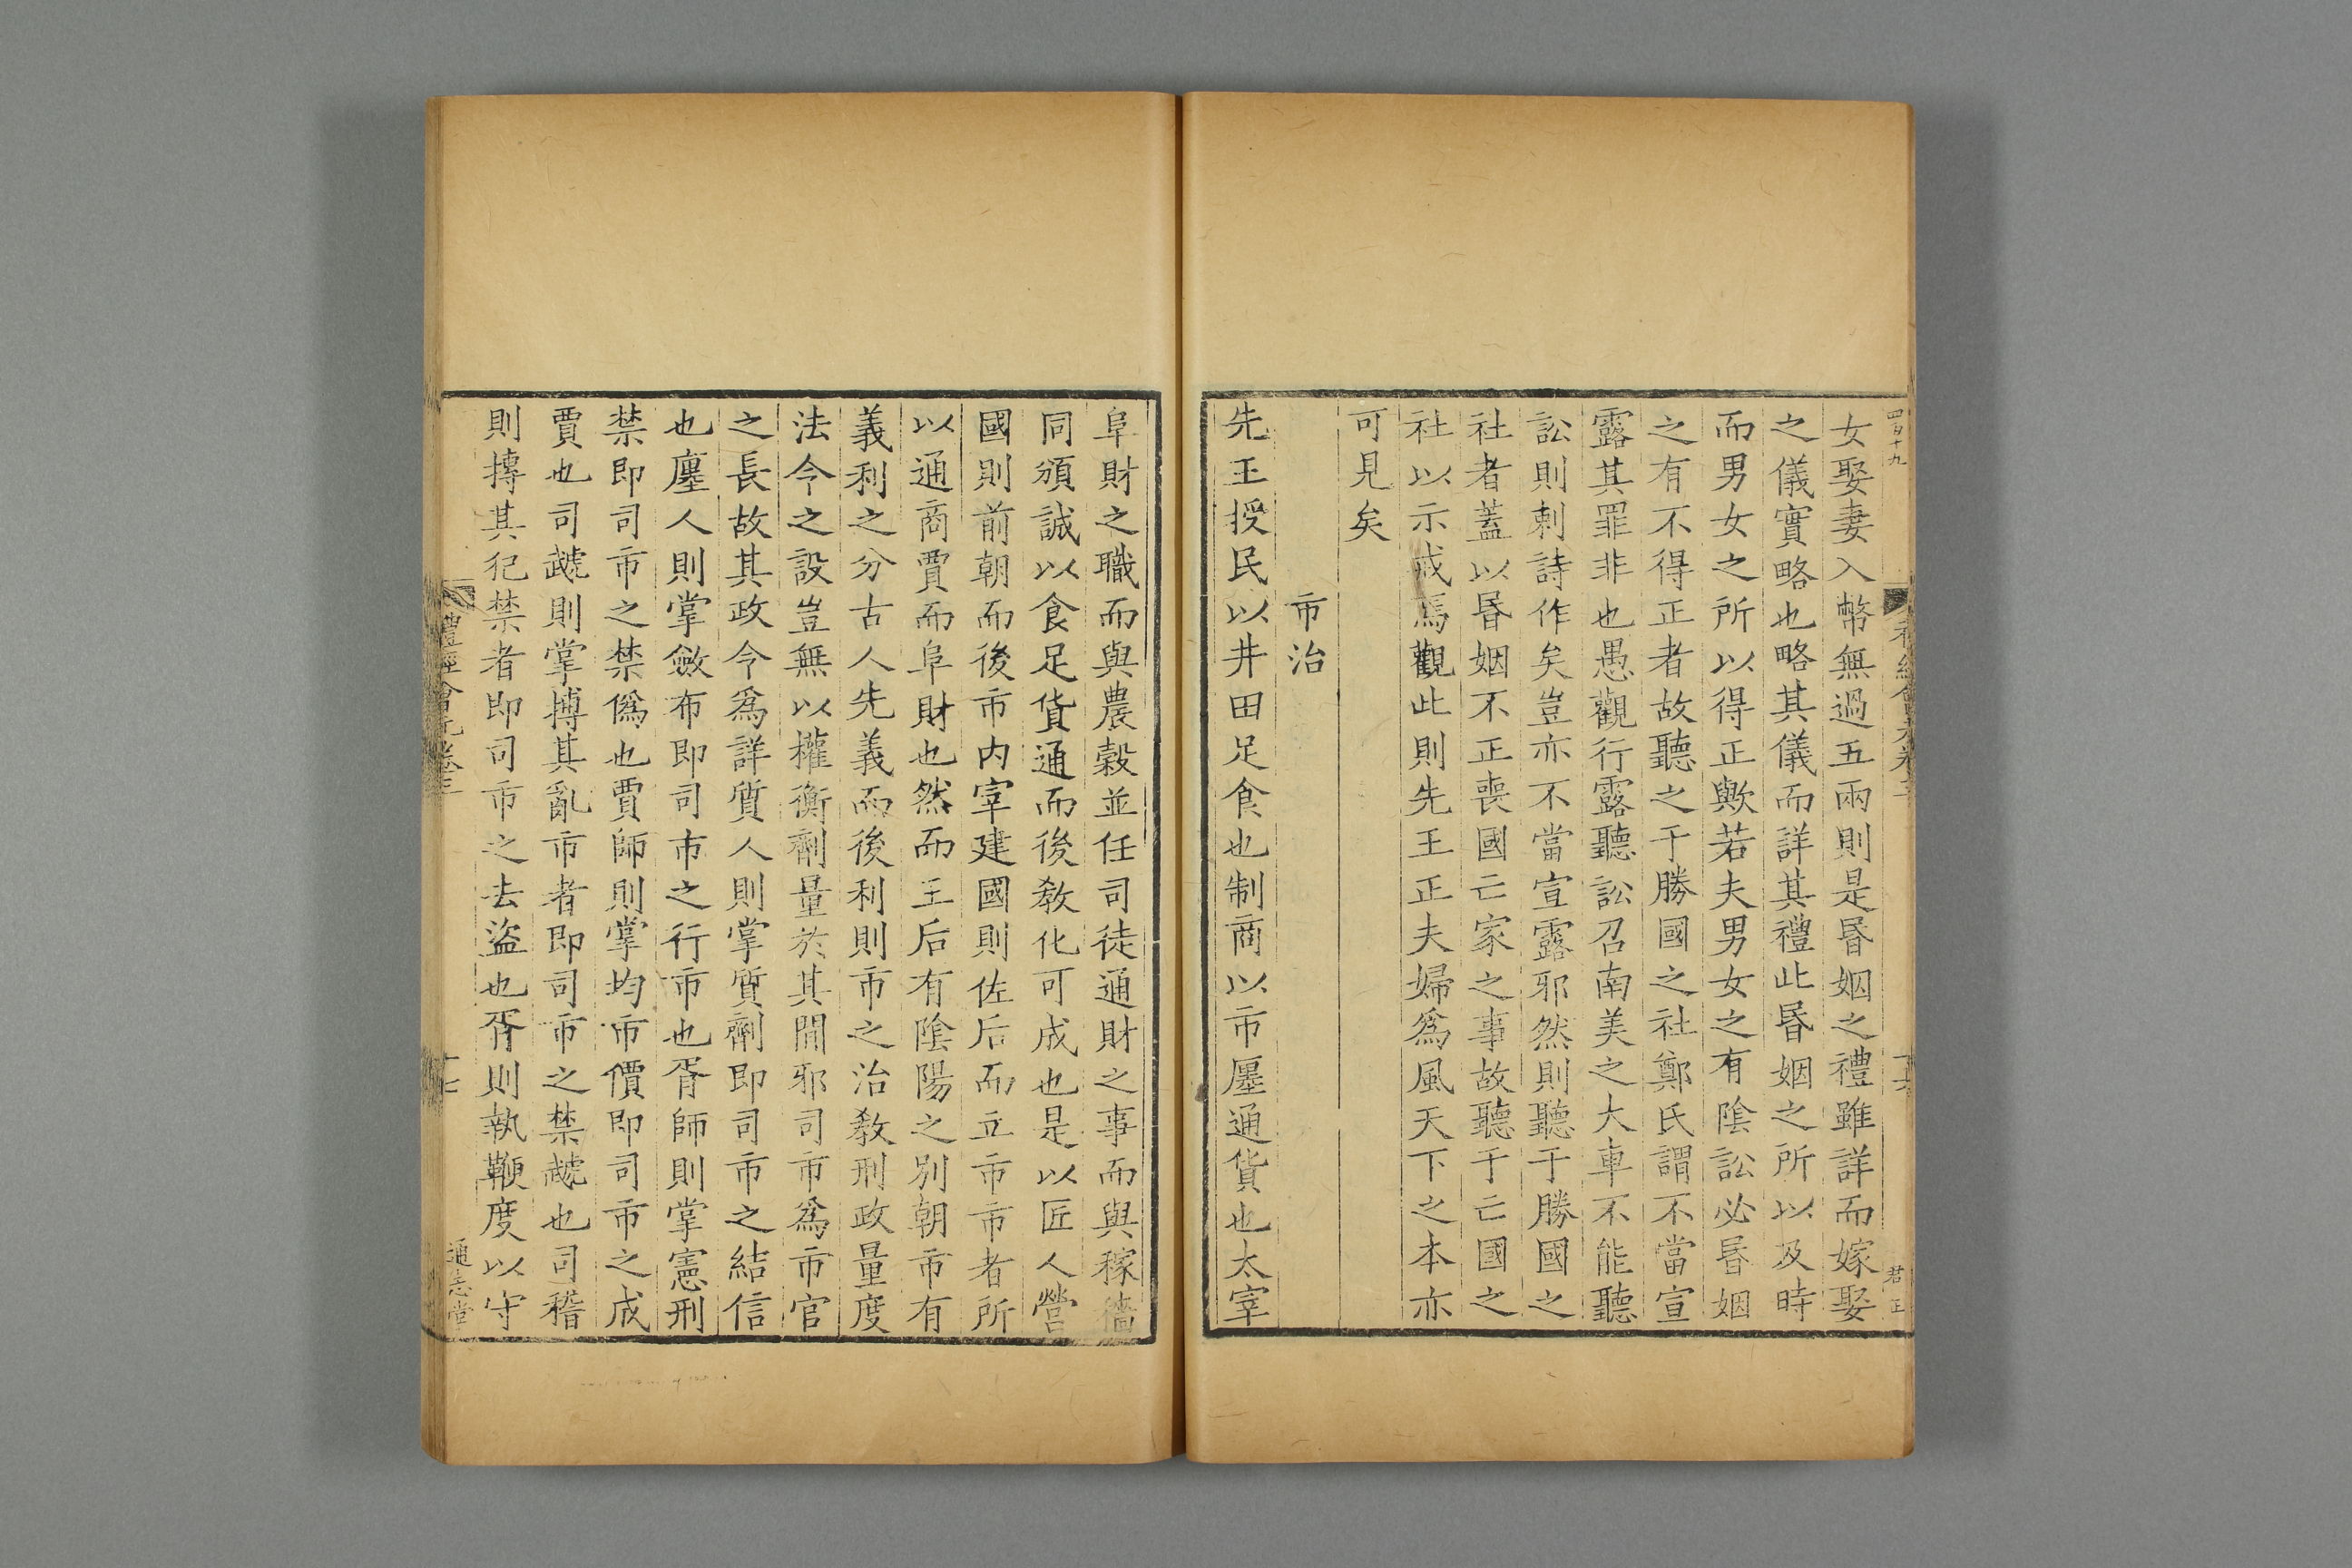 四百十九
女娶妻入幣無過五兩則是昏姻之禮雖詳而嫁娶
之儀實略也略其儀而詳其禮此昏姻之所以及時
而男女之所以得正歟若夫男女之有陰訟必昏姻
之有不得正者故聽之于勝國之社鄭氏謂不當宣
露其罪非也愚觀行露聽訟召南美之大車不能聽
訟則刺詩作矣豈亦不當宣露邪然則聽于勝國之
社者蓋以昏姻不正喪國亡家之事故聽于亡國之
社以示戒焉觀此則先王正夫婦爲風天下之本亦
可見矣
市治
先王授民以井田足食也制商以市廛通貨也太宰
阜財之職而與農穀並任司徒通財之事而與稼穡
同頒誠以食足貨通而後敎化可成也是以匠人營
國則前朝而後市內宰建國則佐后而立市市者所
以通商賈而阜財也然而王后有陰陽之別朝市有
義利之分古人先義而後利則市之治敎刑政量度
法令之設豈無以權衡劑量於其閒邪司市爲市官
之長故其政令爲詳質人則掌質劑即司市之結信
也廛人則掌斂布即司市之行市也胥師則掌憲刑
禁即司市之禁僞也賈師則掌均市價即司市之成
賈也司虣則掌搏其亂市者即司市之禁虣也司稽
則搏其犯禁者即司市之去盜也胥則執鞭度以守
禮經會元卷三
十七
通志堂